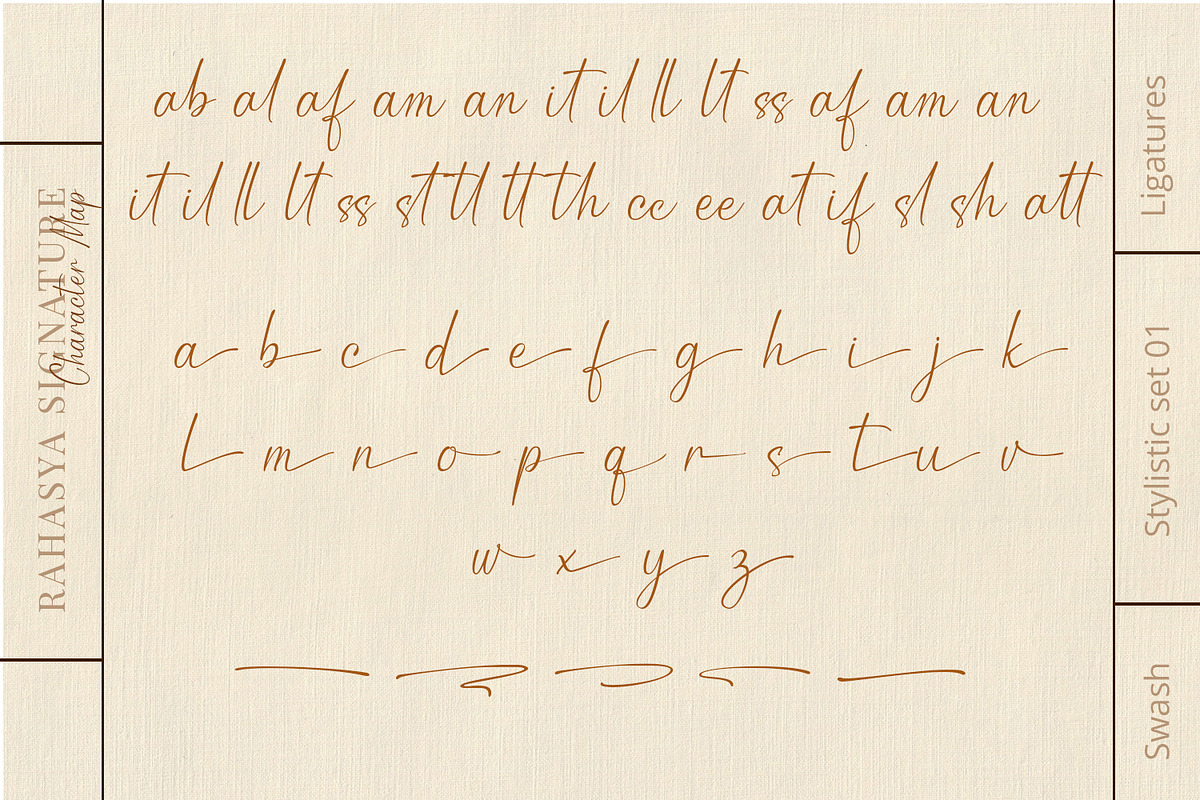 RAHASYA SIGNATURE
Character Map
ab al af am an it il ll lt ss af am an
it il ll lt ss st tl tt th cc ee at if sl sh att
Ligatures
a b c d e f g h i j k
l m n o p q r s t u v
w x y z
Stylistic set 01
Swash